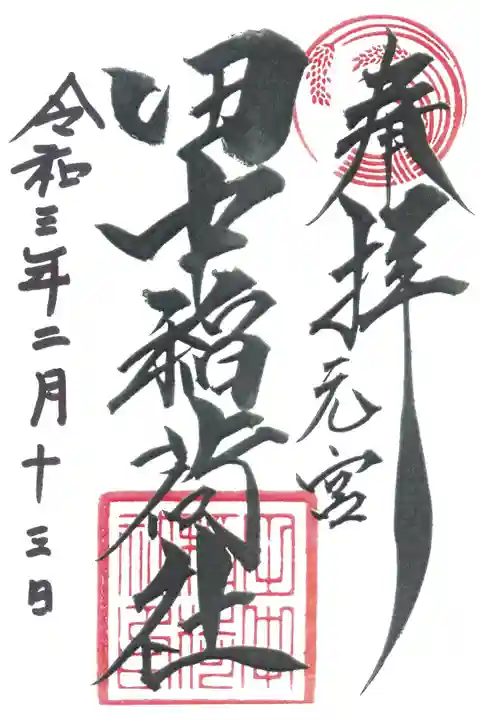 奉拝
元宮
稲荷社
令和三年二月十三日